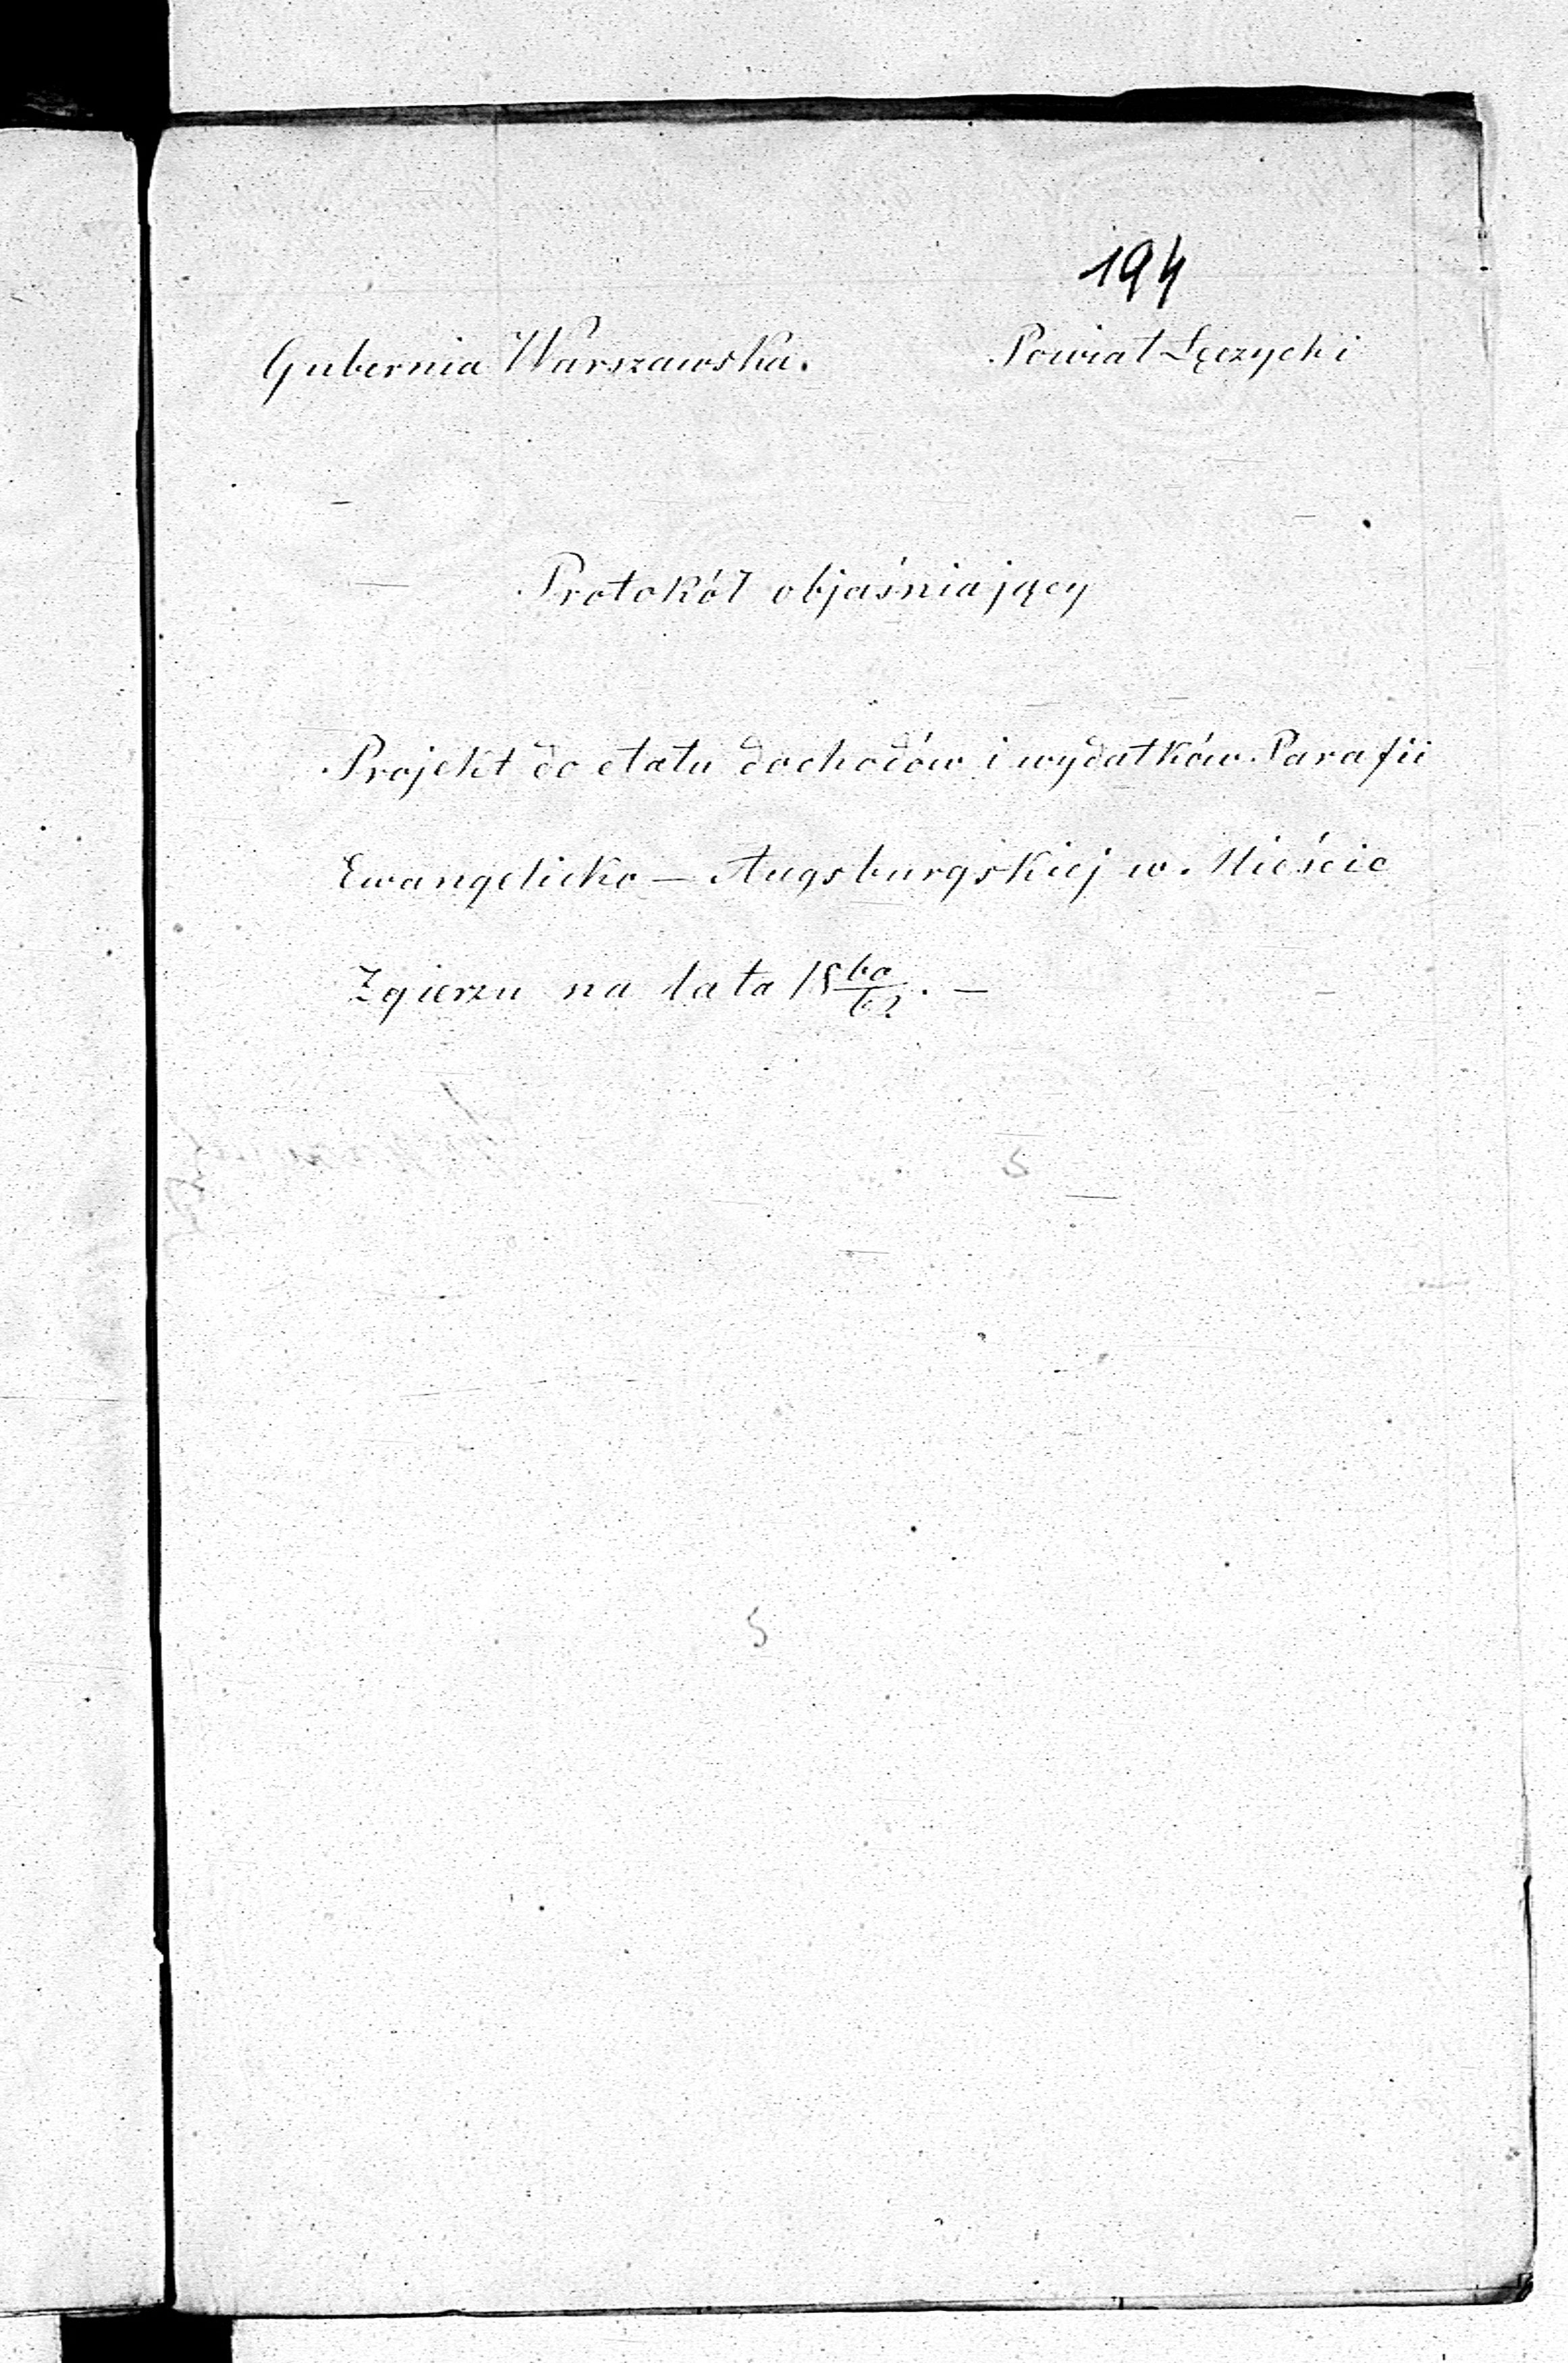 194
Gubernia Warszawska. Powiat Łęczycki
Protokół objaśniający
Projekt do etatu dochodów i wydatków Parafii
Ewangelicko — Augsburgskiej w Mieście
Zgierzu na lata 18 60/62. —